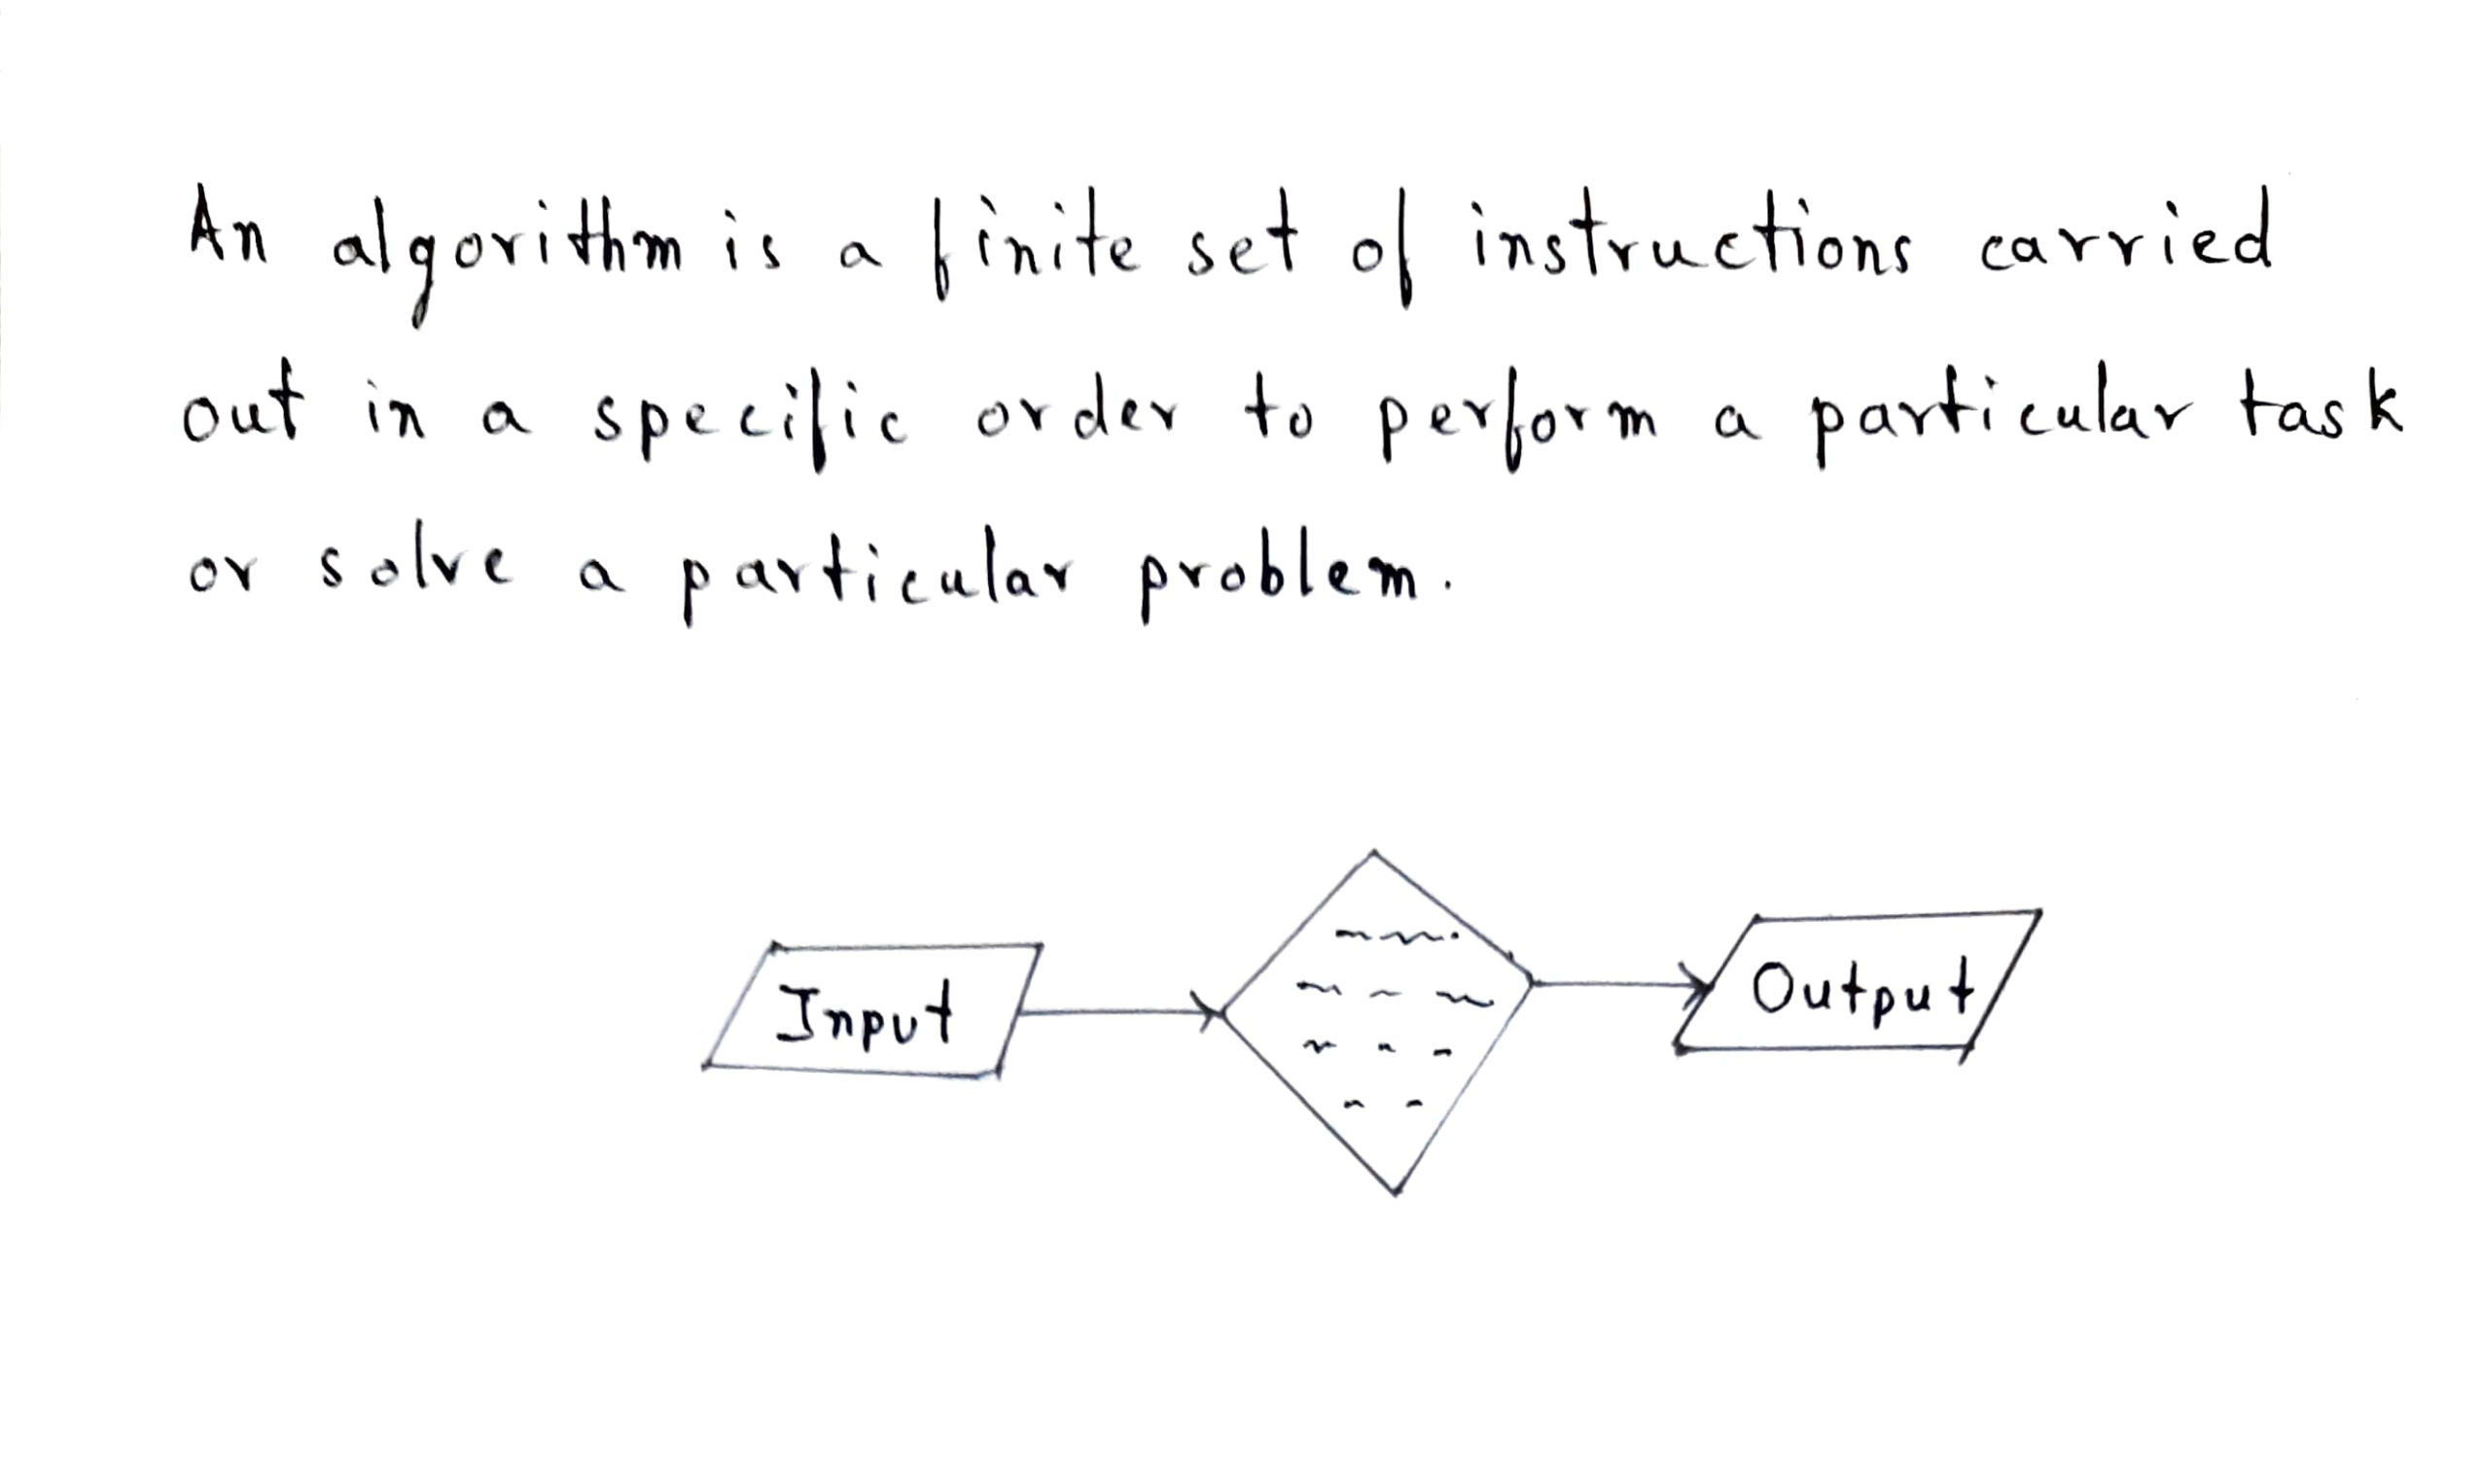 An algorithm is a finite set of instructions carried
out in a specific order to perform a particular task
or solve a particular problem.
Input
Output